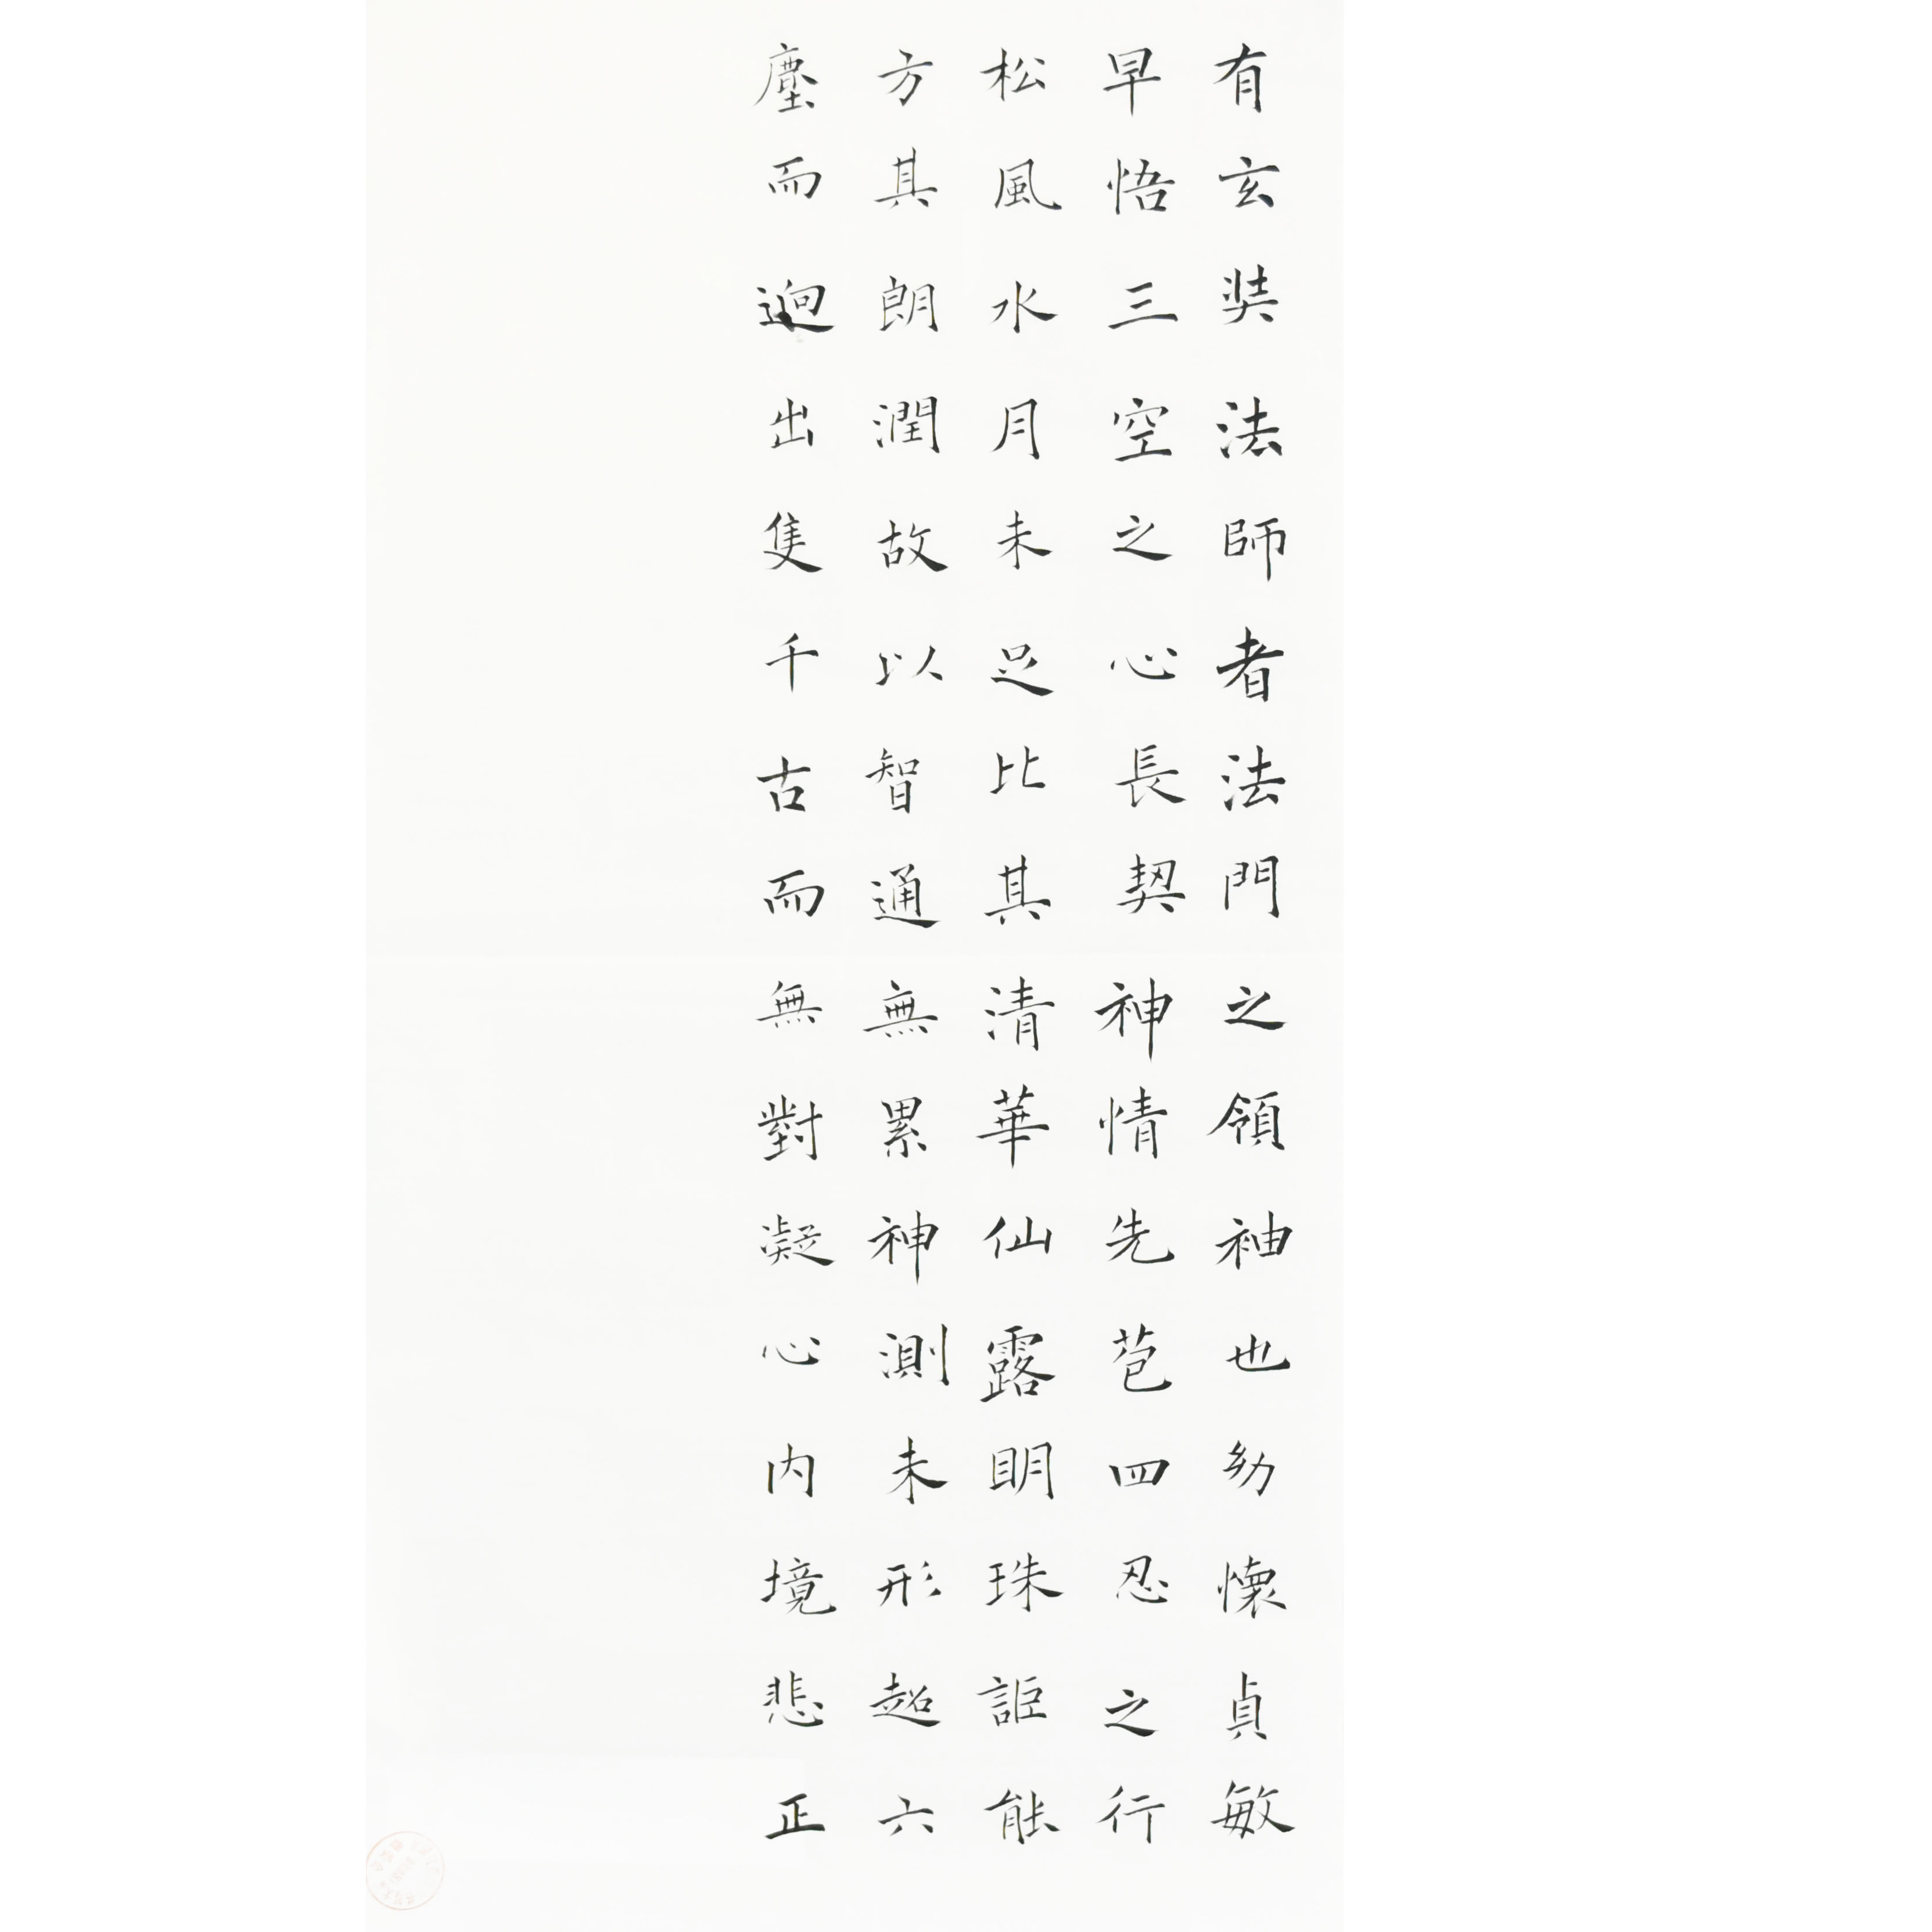 有玄奘法師者法門之領袖也幼懷貞敏
早悟三空之心長契神情先苞四忍之行
松風水月未足比其清華仙露明珠詎能
方其朗潤故以智通無累神測未形超六
塵而迥出隻千古而無對凝心内境悲正